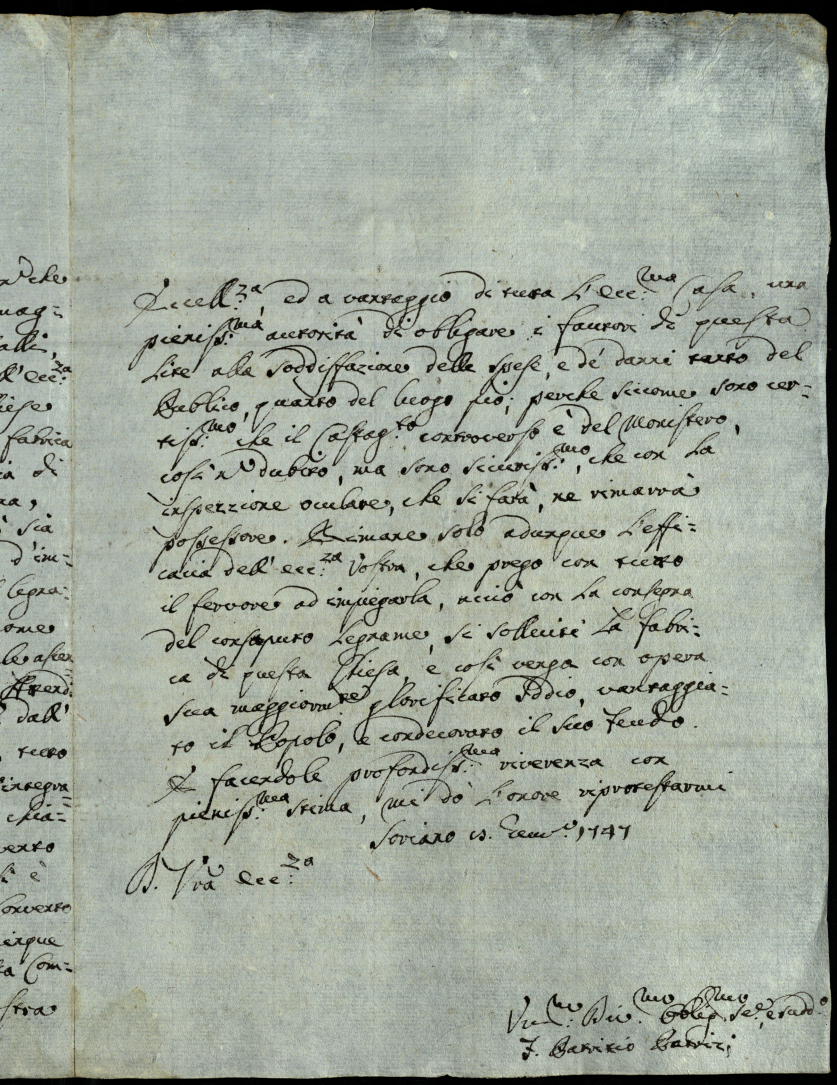 n.° che
mag=
alli,
ll' ecc:za
hiese
fabrica
ia di
na,
sia
d'im=
legna=
ome
le ascen
Attend
dall'
, tutto
integra
chia=
verto
si è
Converto
ta Com=
stra
Eccell:za, ed a vantaggio di tutta L'ecc:ma Casa, una
pieniss:ma autorità di obligare i fautori di questa
Lite alla Soddisfazione delle spese, e de' danni tanto del
Publico, quanto del luogo pio; perche siccome sono cer=
tiss:mo che il Castag:to controverso è del Monistero,
così n.° dubito, ma sono sicuriss:mo, che con La
inspezzione oculare, che si farà, ne rimarrà
possessore. Rimane solo adunque L'effi=
cacia dell' ecc:za Vostra, che prego con tutto
il fervore ad impiegarla, acciò con La consegna
del consaputo Legname, si solleciti La fabri=
ca di questa Chiesa, e così venga con opera
sua maggiorm:te glorificato Iddio, vantaggia=
to il Popolo, e condecorato il suo feudo.
E facendole profondiss:ma riverenza con
pieniss:ma stima, mi dò L'onore riprotestarmi
Soriano 15. Genn:o 1747
D. V'ra ecc:za
Um:mo Div:mo Obblig:mo Se:e, e Sudd:o
F. Patrizio Patrizi